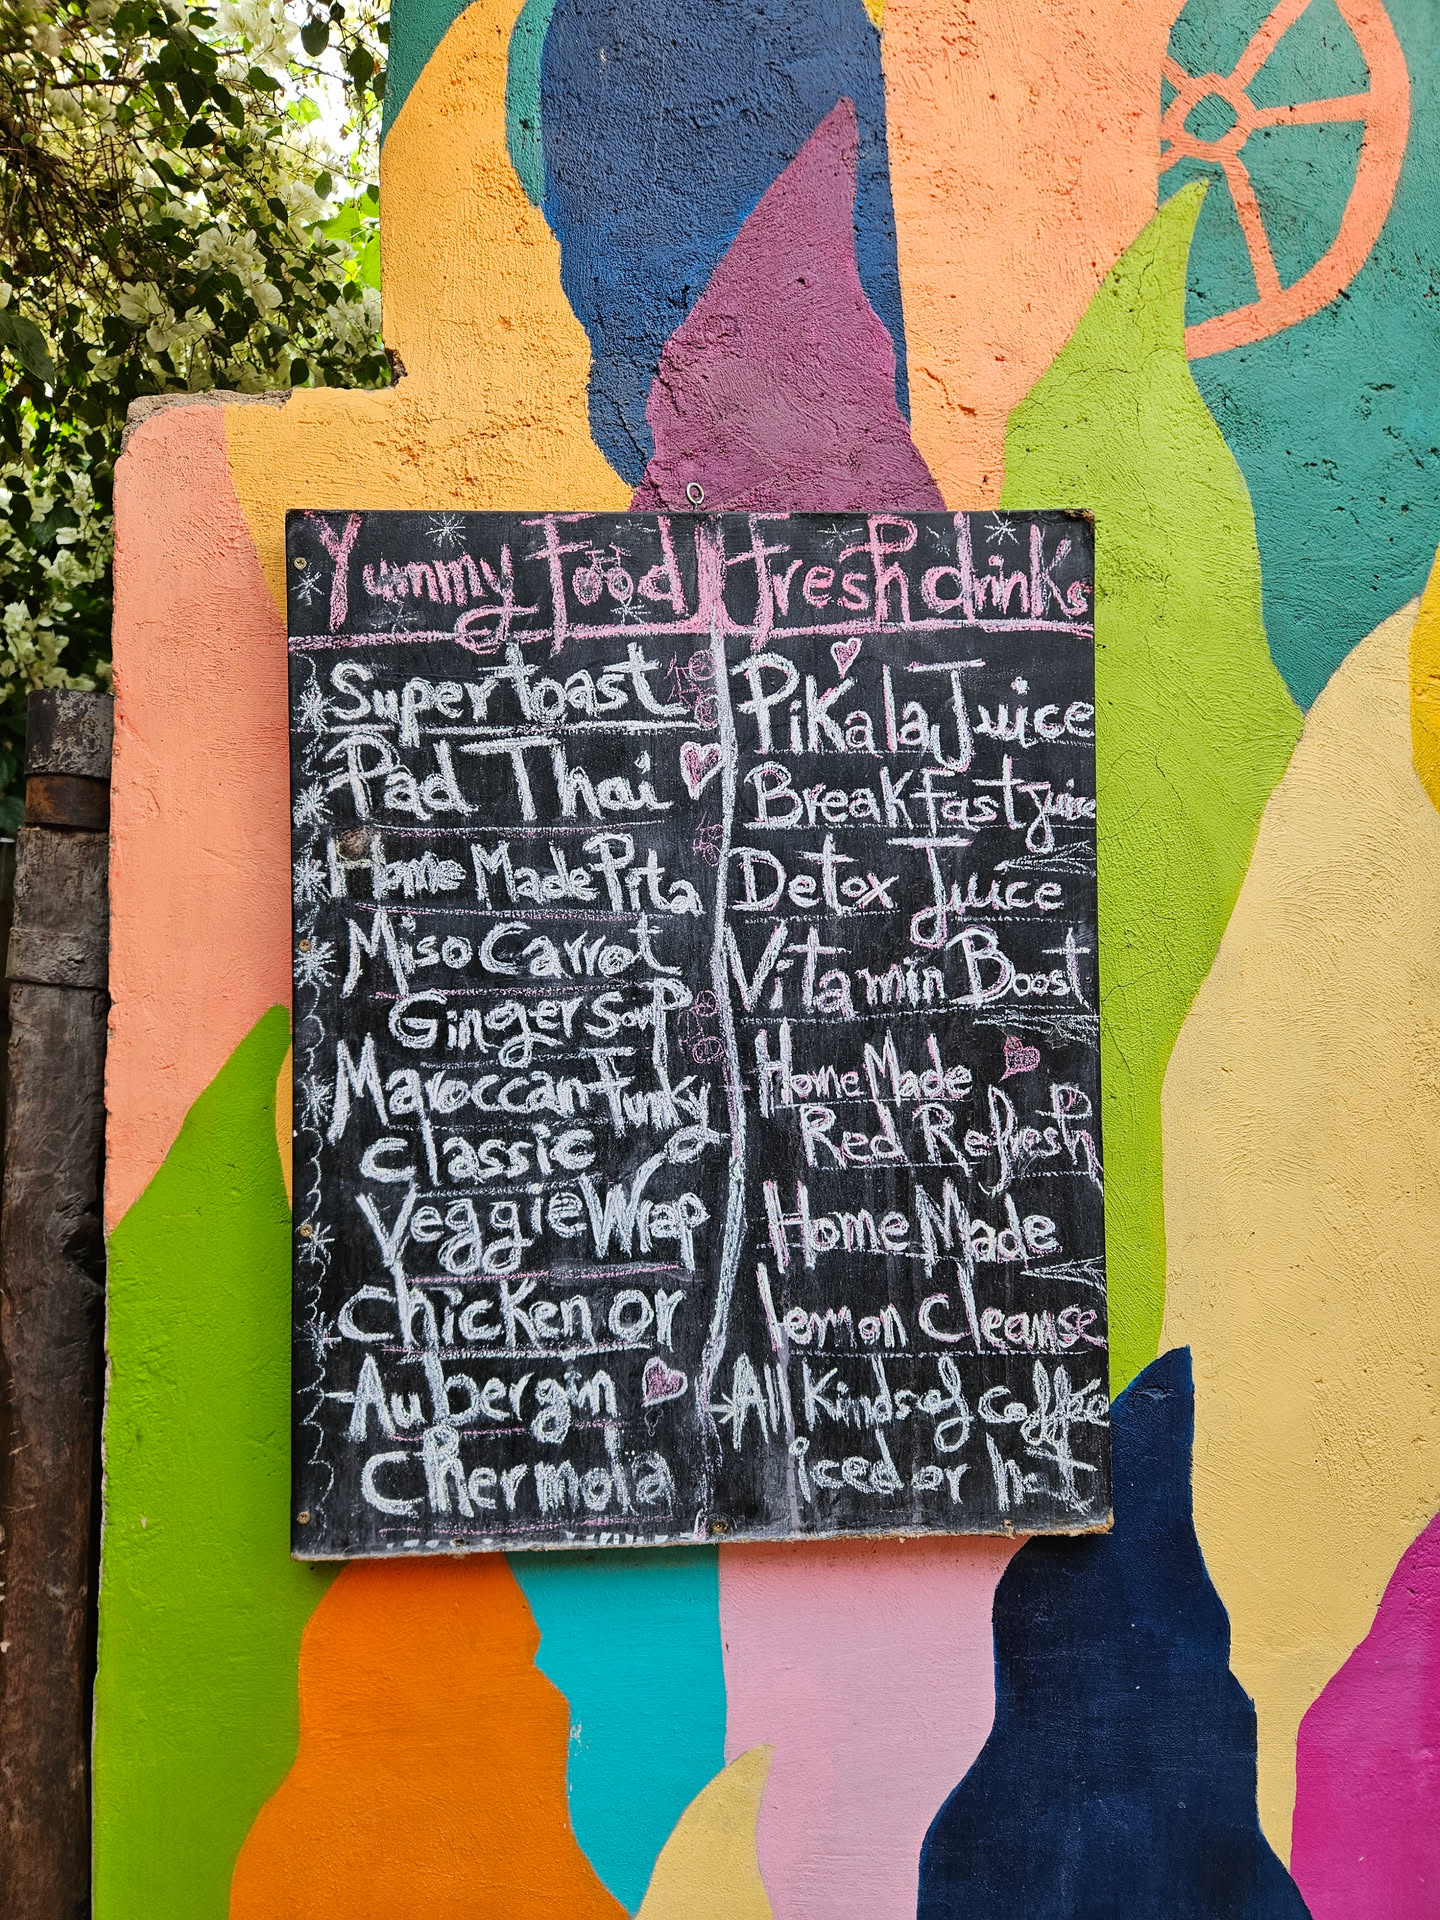 Yummy Food
Supertoast
Pad Thai
Home Made Pita
Miso Carrot
Ginger Soup
Maroccan Funky
classic
Veggie Wrap
chicken or
Aubergin
Chermola
Fresh drinks
Pikala Juice
Breakfast juice
Detox Juice
Vitamin Boost
Home Made
Red Refresh
Home Made
lemon Cleanse
All Kinds of coffee
iced or hot